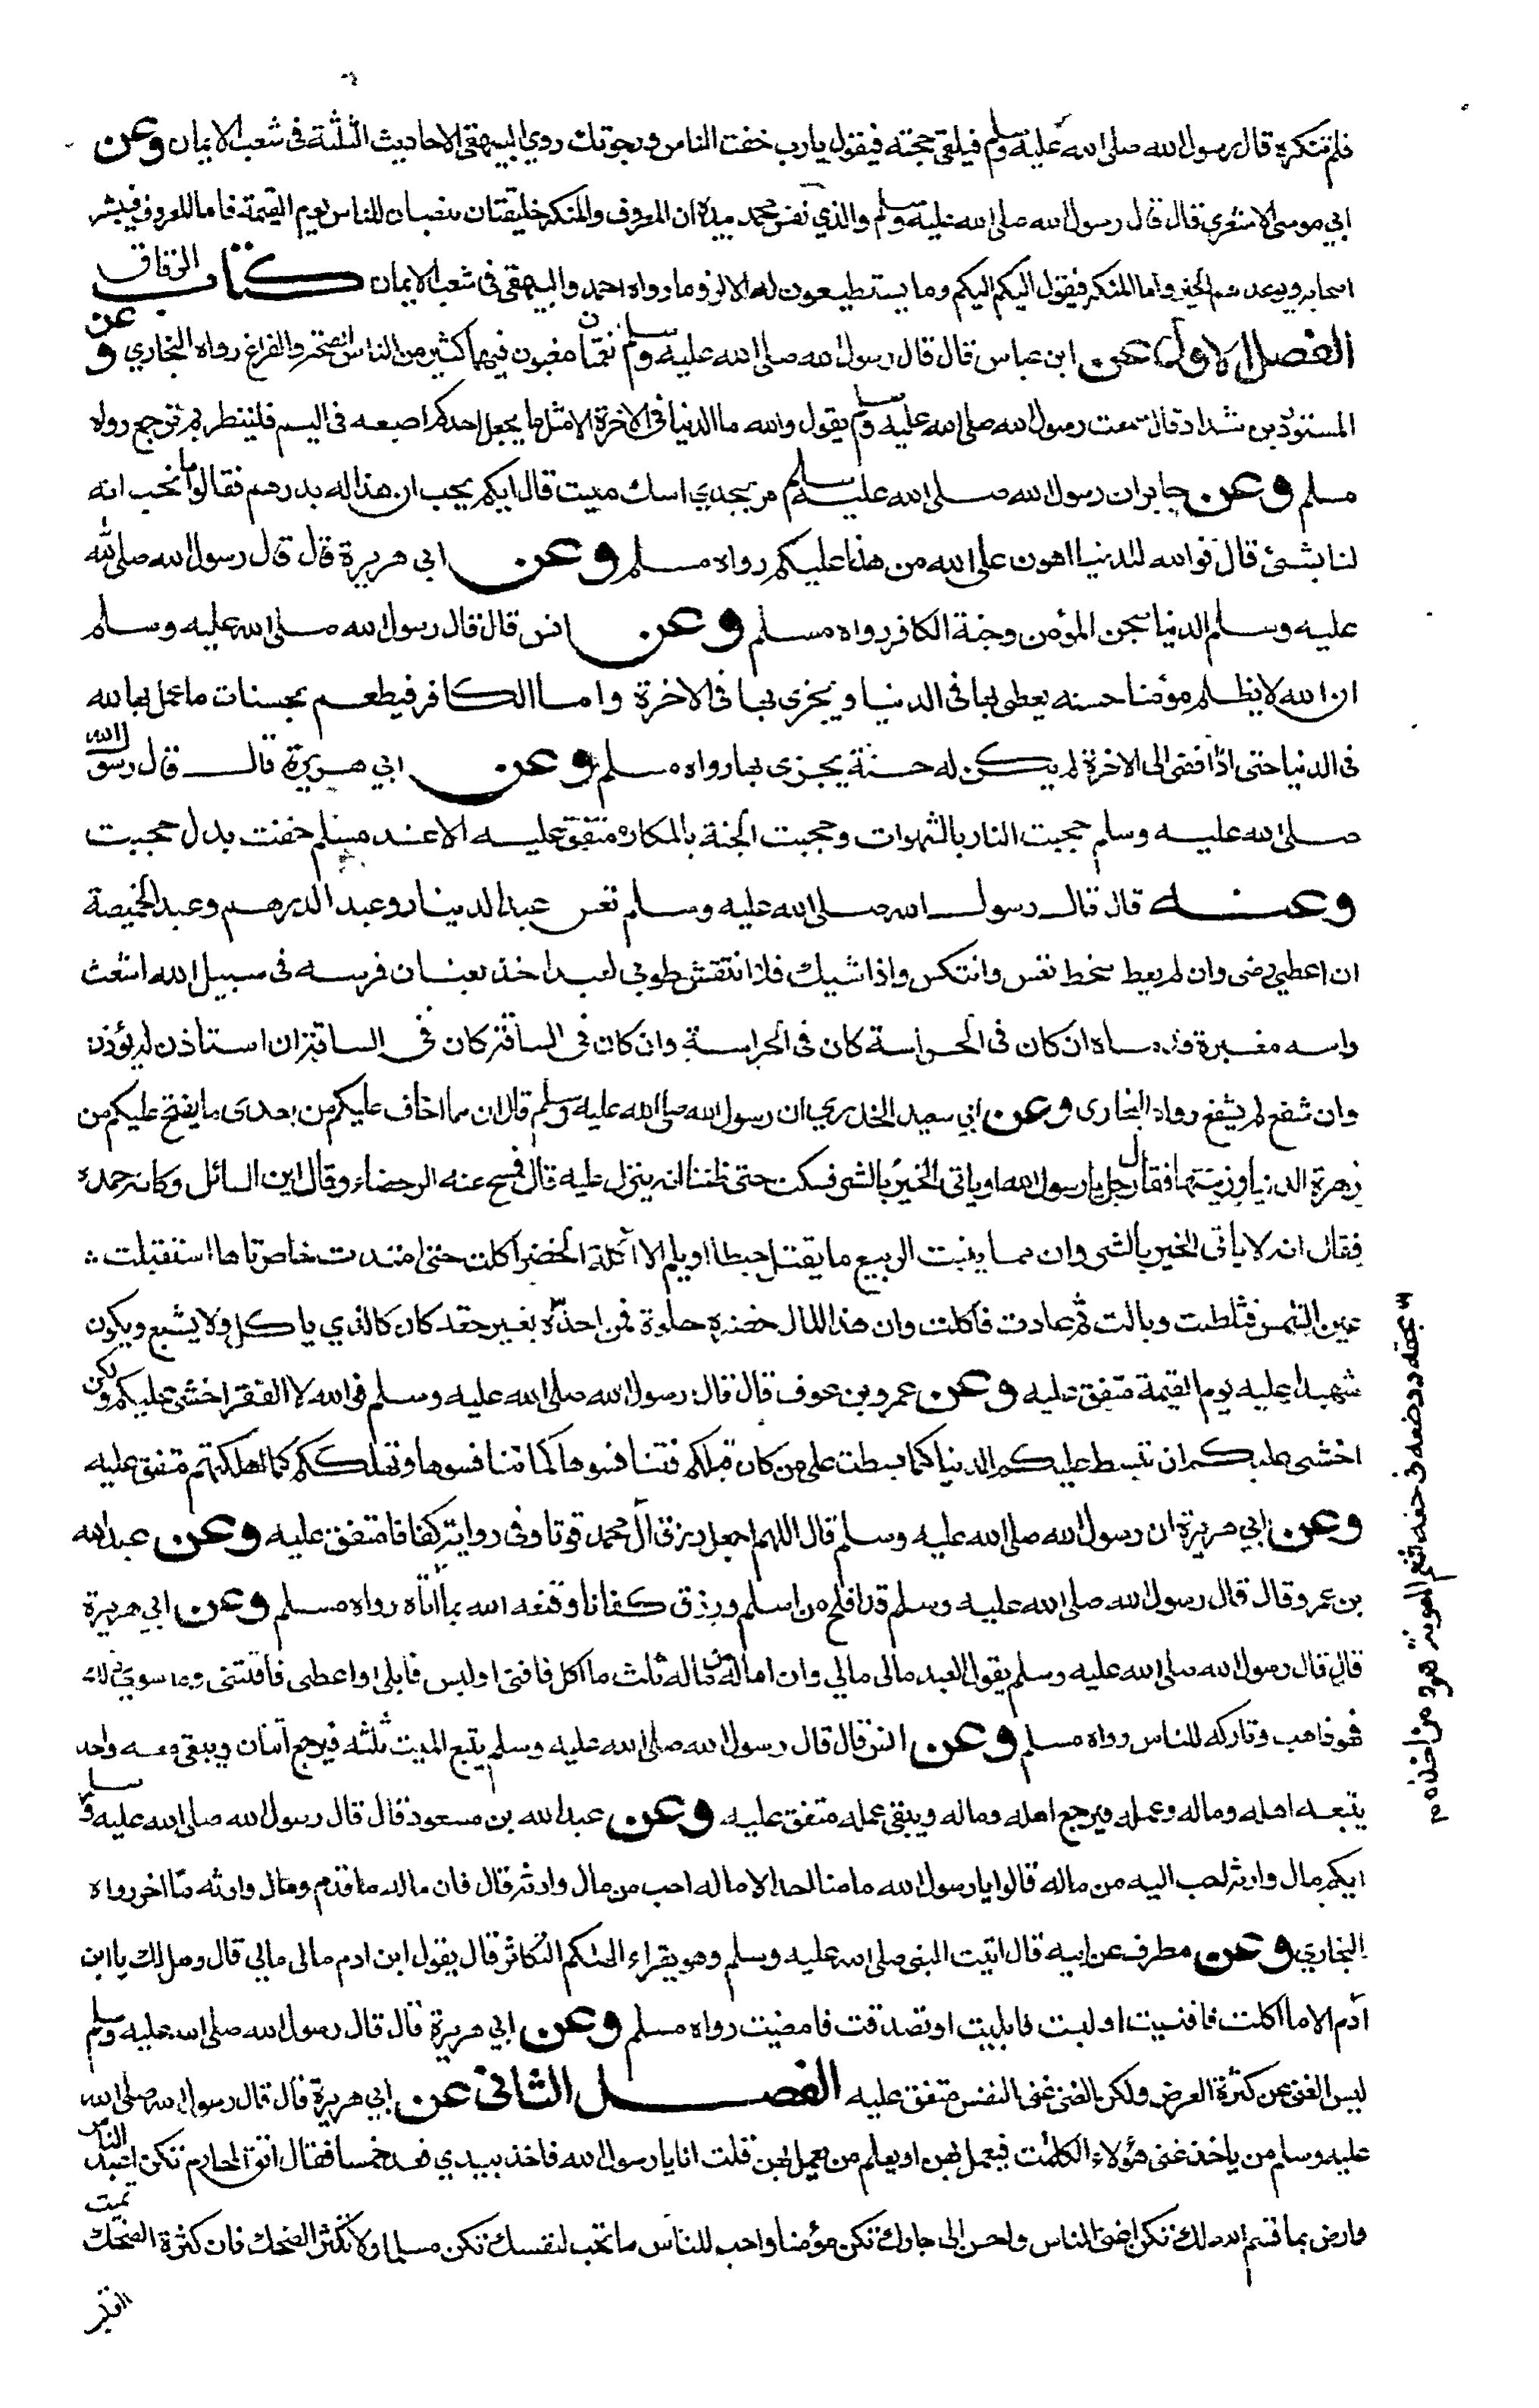 فلم تنكره قال رسول الله صلى الله عليه وسلم فيلقى حجته فيقول يارب خفت الناس ورجوتك روي البيهقي الاحاديث الثلثة فى شعب الايمان وعن
ابي موسى الاشعري قال قال رسول الله صلى الله عليه وسلم والذي نفس محمد بيده ان المعروف والمنكر خليقتان تنصبان للناس يوم القيمة فاما المعروف فيبشر
اصحابه ويوعدهم الخير واما المنكر فيقول اليكم اليكم وما يستطيعون له الا لزوما رواه احمد والبيهقى فى شعب الايمان كتاب الرقاق
الفصل الاول عن ابن عباس قال قال رسول الله صلى الله عليه وسلم نعمتان مغبون فيهما كثير من الناس الصحة والفراغ رواه البخاري وعن
المستورد بن شداد قال سمعت رسول الله صلى الله عليه وسلم يقول والله ما الدنيا فى الاخرة الا مثل ما يجعل احدكم اصبعه فى اليم فلينظر بم ترجع رواه
مسلم وعن جابر ان رسول الله صلى الله عليه وسلم مر بجدي اسك ميت قال ايكم يحب ان هذا له بدرهم فقالوا ما نحب انه
لنا بشئ قال فوالله للدنيا اهون على الله من هذا عليكم رواه مسلم وعن ابى هريرة قال قال رسول الله صلى الله
عليه وسلم الدنيا سجن المؤمن وجنة الكافر رواه مسلم وعن انس قال قال رسول الله صلى الله عليه وسلم
ان الله لا يظلم مؤمنا حسنه يعطى بها فى الدنيا ويجزى بها فى الاخرة واما الكافر فيطعم بحسنات ما عمل بها لله
فى الدنيا حتى اذا افضى الى الاخرة لم يكن له حسنة يجزى بها رواه مسلم وعن ابي هريرة قال قال رسول الله
صلى الله عليه وسلم حجبت النار بالشهوات وحجبت الجنة بالمكاره متفق عليه الا عند مسلم حفت بدل حجبت
وعنه قال قال رسول الله صلى الله عليه وسلم تعس عبد الدينار وعبد الدرهم وعبد الخميصة
ان اعطي رضى وان لم يعط سخط تعس وانتكس واذا شيك فلا انتقش طوبى لعبد اخذ بعنان فرسه فى سبيل الله اشعث
راسه مغبرة قدماه ان كان فى الحراسة كان فى الحراسة وان كان فى الساقة كان فى الساقة ان استاذن لم يؤذن
وان شفع لم يشفع رواه البخارى وعن ابي سعيد الخدري ان رسول الله صلى الله عليه وسلم قال ان مما اخاف عليكم من بعدى ما يفتح عليكم من
زهرة الدنيا وزينتها فقال رجل يا رسول الله او ياتى الخير بالشر فسكت حتى ظننا انه ينزل عليه قال فمسح عنه الرحضاء وقال اين السائل وكانه حمده
فقال انه لا ياتى الخير بالشر وان مما ينبت الربيع ما يقتل حبطا او يلم الا آكلة الخضر اكلت حتى امتدت خاصرتاها استقبلت
عين الشمس فثلطت وبالت ثم عادت فاكلت وان هذا المال خضرة حلوة فمن اخذه بغير حقه كان كالذي ياكل ولا يشبع ويكون
شهيدا عليه يوم القيمة متفق عليه وعن عمرو بن عوف قال قال رسول الله صلى الله عليه وسلم فوالله لا الفقر اخشى عليكم ولكن
اخشى عليكم ان تبسط عليكم الدنيا كما بسطت على من كان قبلكم فتنافسوها كما تنافسوها وتهلككم كما اهلكتهم متفق عليه
وعن ابي هريرة ان رسول الله صلى الله عليه وسلم قال اللهم اجعل رزق آل محمد قوتا وفى رواية كفافا متفق عليه وعن عبد الله
بن عمرو قال قال رسول الله صلى الله عليه وسلم قد افلح من اسلم ورزق كفافا وقنعه الله بما اتاه رواه مسلم وعن ابي هريرة
قال قال رسول الله صلى الله عليه وسلم يقول العبد مالى مالي وان ماله من ماله ثلث ما اكل فافنى او لبس فابلى او اعطى فاقتنى وما سوى ذلك
فهو ذاهب وتاركه للناس رواه مسلم وعن انس قال قال رسول الله صلى الله عليه وسلم يتبع الميت ثلثه فيرجع اثنان ويبقى معه واحد
يتبعه اهله وماله وعمله فيرجع اهله وماله ويبقى عمله متفق عليه وعن عبد الله بن مسعود قال قال رسول الله صلى الله عليه وسلم
ايكم مال وارثه احب اليه من ماله قالوا يا رسول الله ما منا احد الا ماله احب من مال وارثه قال فان ماله ما قدم ومال وارثه ما اخر رواه
البخاري وعن مطرف عن ابيه قال اتيت النبى صلى الله عليه وسلم وهو يقراء الهىكم التكاثر قال يقول ابن ادم مالى مالي قال وهل لك يا ابن
آدم الا ما اكلت فافنيت او لبست فابليت او تصدقت فامضيت رواه مسلم وعن ابي هريرة قال قال رسول الله صلى الله عليه وسلم
ليس الغنى عن كثرة العرض ولكن الغنى غنى النفس متفق عليه الفصل الثانى عن ابي هريرة قال قال رسول الله صلى الله
عليه وسلم من ياخذ عنى هؤلاء الكلمات فيعمل بهن او يعلم من يعمل بهن قلت انا يا رسول الله فاخذ بيدي فعد خمسا فقال اتق المحارم تكن اعبد الناس
وارض بما قسم الله لك تكن اغنى الناس واحسن الى جارك تكن مؤمنا واحب للناس ما تحب لنفسك تكن مسلما ولا تكثر الضحك فان كثرة الضحك تميت
القلب
بحقه ووضعه فى حقه فنعم المعونة هو ومن اخذه